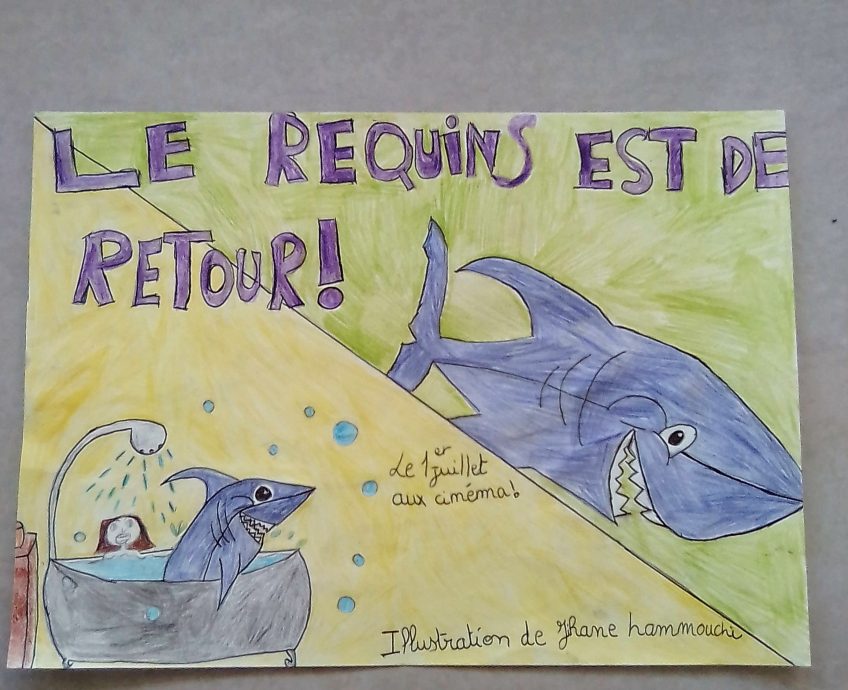 LE REQUINS EST DE
RETOUR!
Le 1er juillet
aux cinéma!
Illustration de Jhane hammouchi